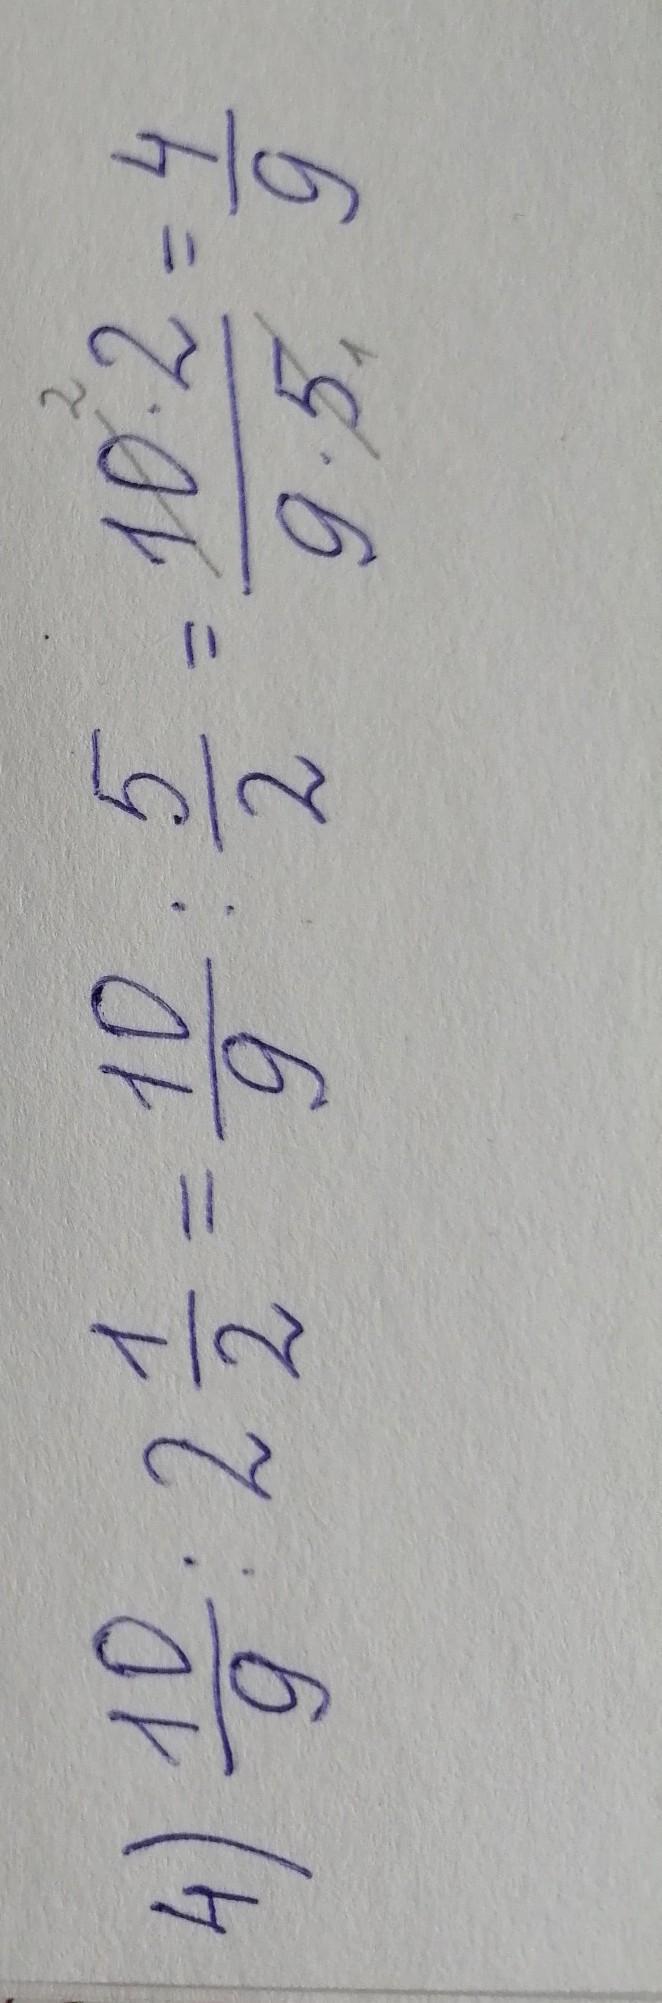 4) 10/9 : 2 1/2 = 10/9 : 5/2 = 10² · 2 / 9 · 5₁ = 4/9